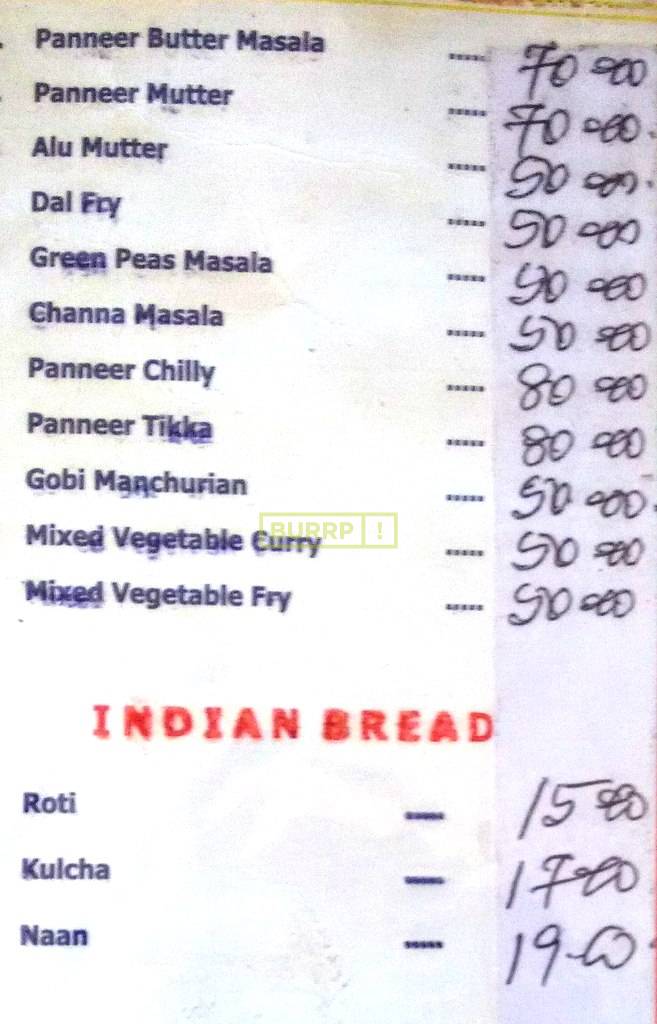 Panneer Butter Masala ..... 70-00
Panneer Mutter ..... 70-00.
Alu Mutter ..... 50-00.
Dal Fry ..... 50-00
Green Peas Masala ..... 50-00
Channa Masala ..... 50-00
Panneer Chilly ..... 80-00
Panneer Tikka ..... 80-00
Gobi Manchurian ..... 50-00.
BURRP!
Mixed Vegetable Curry ..... 50-00
Mixed Vegetable Fry ..... 50-00
INDIAN BREAD
Roti ..... 15-00
Kulcha ..... 17-00
Naan ..... 19-00